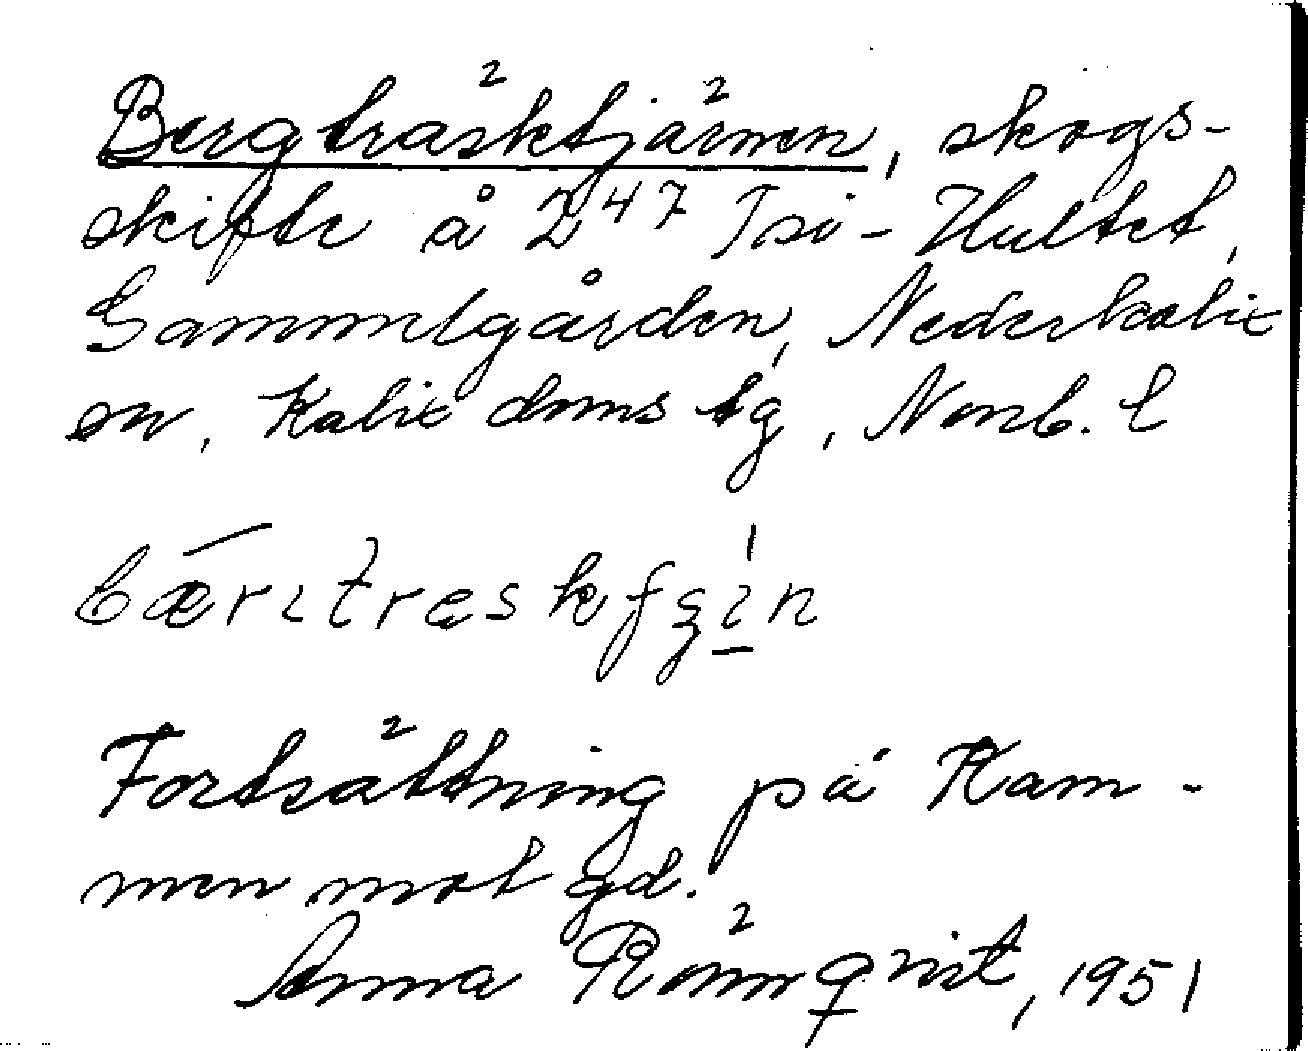 Bergträsktjärnen, skogs-
skifte å 2⁴⁷ Isi-Hultet,
Gammelgården, Nederkalix
sn, Kalix doms lg, Norrb. l
bærıtræskfʒín
Fortsättning på Kam-
men mot gd.
Anna Rönnqvist, 1951